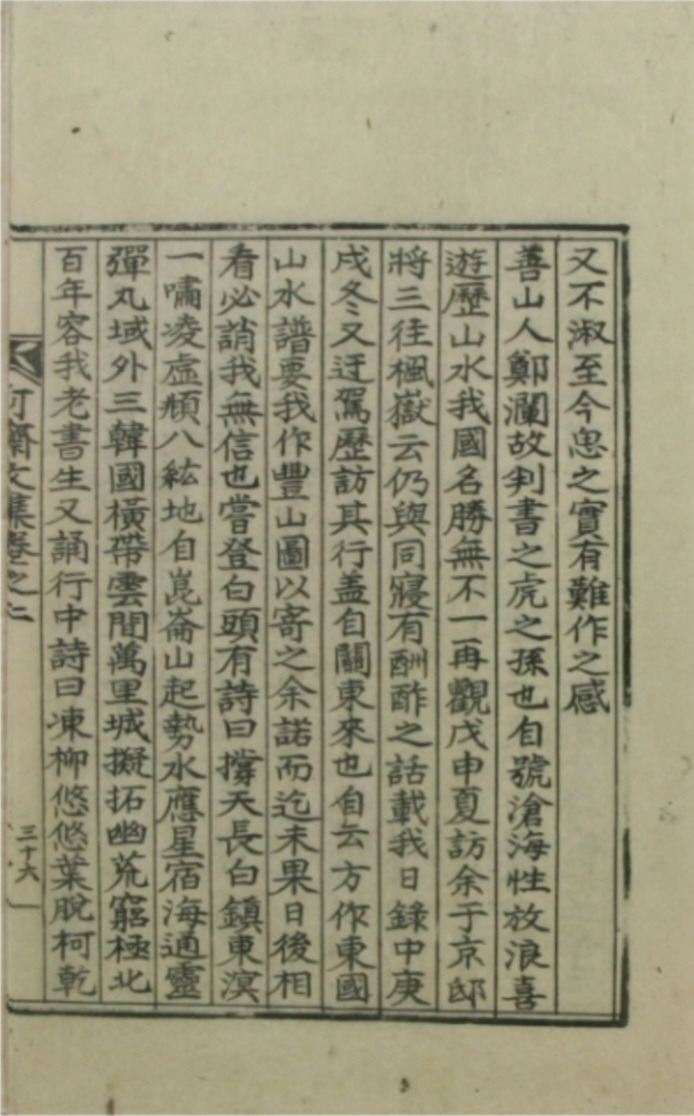 又不淑至今思之實有難作之感
善山人鄭瀾故判書之虎之孫也自號滄海性放浪喜
遊歷山水我國名勝無不一再觀戊申夏訪余于京邸
將三徃楓嶽云仍與同寢有酬酢之話載我日錄中庚
戌冬又迂駕歷訪其行盖自關東來也自云方作東國
山水譜要我作豐山圖以寄之余諾而迄未果日後相
看必誚我無信也嘗登白頭有詩曰撐天長白鎭東溟
一嘯凌虛頫八紘地自崑崙山起勢水應星宿海通靈
彈丸域外三韓國橫帶雲間萬里城擬拓幽荒窮極北
百年容我老書生又誦行中詩曰凍柳悠悠葉脫柯乾
可齋文集卷之二
三十六